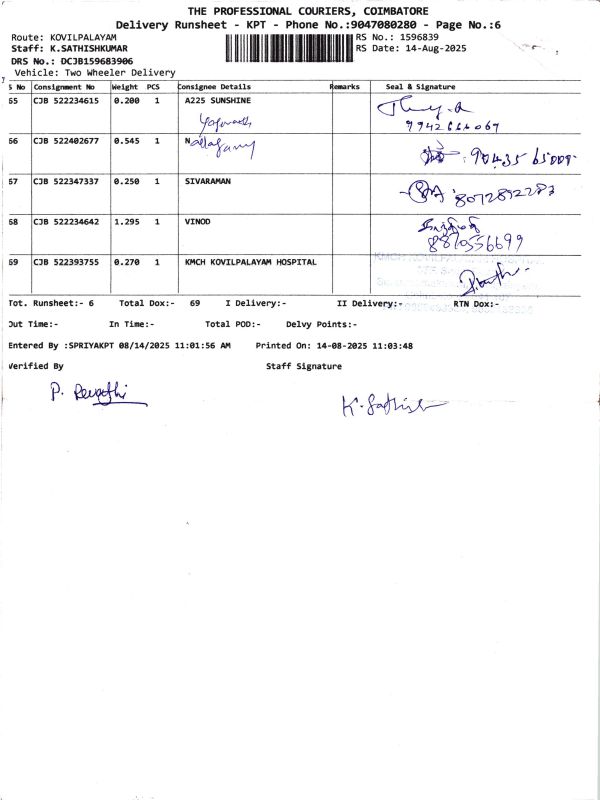 THE PROFESSIONAL COURIERS, COIMBATORE
Delivery Runsheet - KPT - Phone No.:9047080280 - Page No.:6
Route: KOVILPALAYAM RS No.: 1596839
Staff: K.SATHISHKUMAR RS Date: 14-Aug-2025
DRS No.: DCJB159683906
Vehicle: Two Wheeler Delivery
S No Consignment No Weight PCS Consignee Details Remarks Seal & Signature
65 CJB 522234615 0.200 1 A225 SUNSHINE
66 CJB 522402677 0.545 1
67 CJB 522347337 0.250 1 SIVARAMAN 8072892283
68 CJB 522234642 1.295 1 VINOD
8870556699
69 CJB 522393755 0.270 1 KMCH KOVILPALAYAM HOSPITAL
Tot. Runsheet:- 6 Total Dox:- 69 I Delivery:- II Delivery:- RTN Dox:-
Out Time:- In Time:- Total POD:- Delvy Points:-
Entered By :SPRIYAKPT 08/14/2025 11:01:56 AM Printed On: 14-08-2025 11:03:48
Verified By Staff Signature
P. Revathi K. Sathish